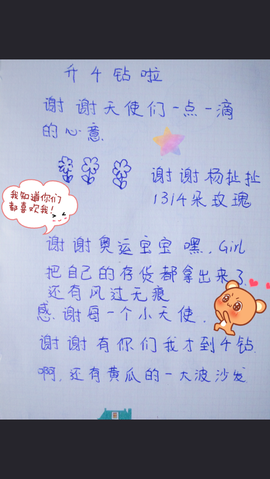 升4钻啦
谢谢天使们一点一滴
的心意.
谢谢杨扯扯
1314朵玫瑰
我知道你们
都喜欢我！
谢谢奥运宝宝嘿,Girl
把自己的存货都拿出来了
还有风过无痕
感谢每一个小天使.
谢谢有你们我才到4钻.
啊,还有黄瓜的一大波沙发